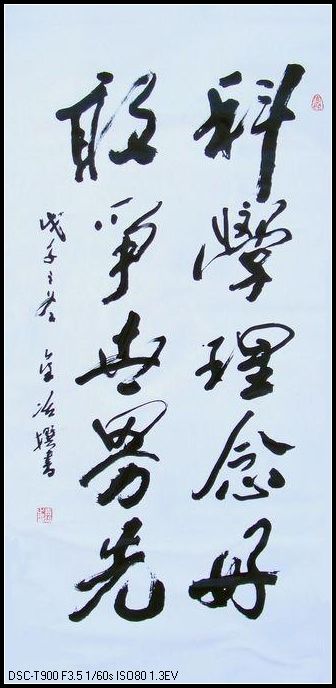 科學理念好
敢爭世界先
戊子之
撰書
DSC-T900 F3.5 1/60s ISO80 1.3EV